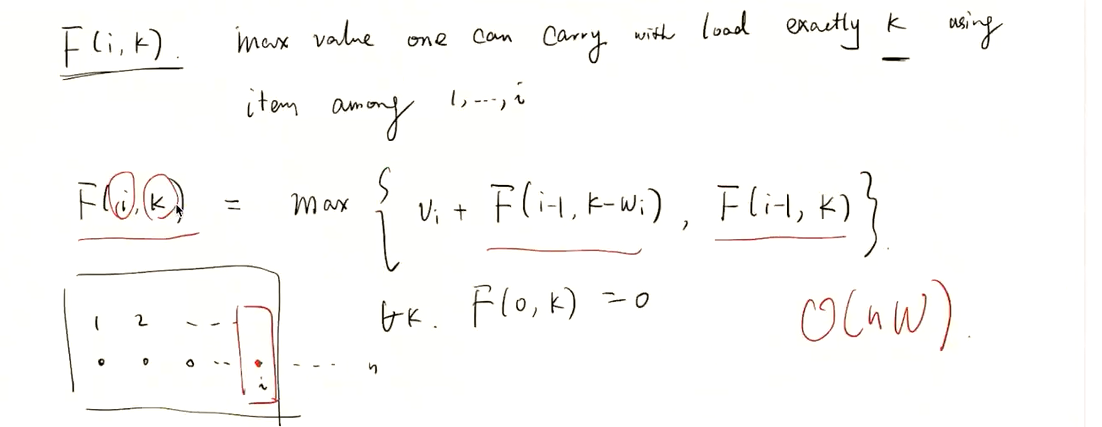 F(i,k). max value one can carry with load exactly k using
item among 1,...,i
F(i,k) = max { vi + F(i-1, k-wi), F(i-1, k) }.
∀k. F(0,k) = 0
O(nW).
1 2 ---
i ---- n